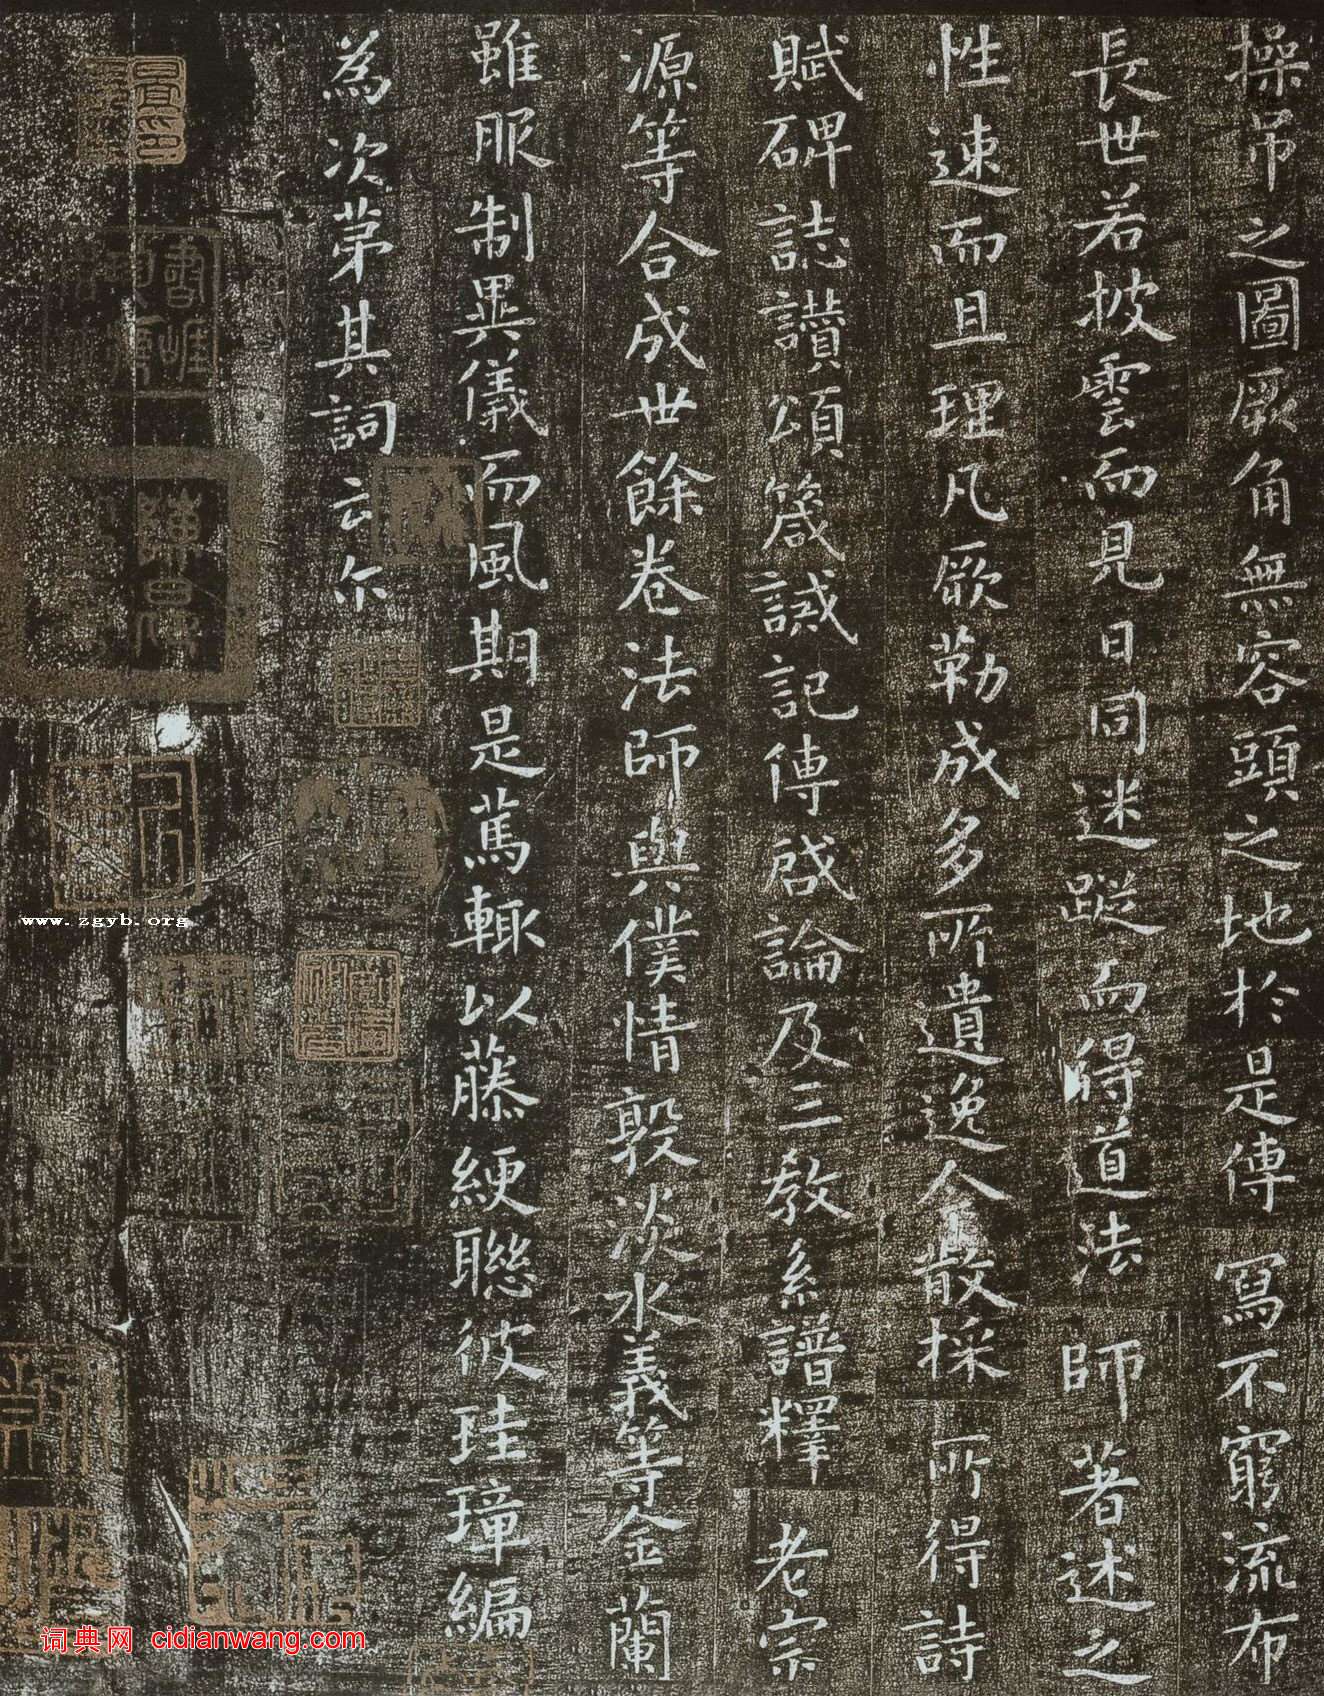 操吊之圖厥角無容頭之地於是傳寫不窮流布
長世若披雲而見日同迷蹤而得道法師著述之
性速而且理凡厥勒成多所遺逸今散採所得詩
賦碑誌讃頌箴誡記傳啟論及三教系譜釋老宗
源等合成世餘卷法師與僕情敦淡水義等金蘭
雖服制異儀而風期是篤輒以藤綆聯彼珪璋編
為次第其詞云尔
www.zgyb.org
词典网 cidianwang.com